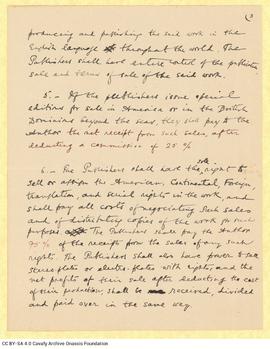 3
producing and publishing the said work in the
English language throughout the world. The
Publishers shall have entire control of the publication
sale and terms of sale of the said work.
5.- If the publishers issue special
editions for sale in America or in the British
Dominions beyond the seas, they shall pay to the
Author the net receipt from such sales, after
deducting a commission of 25 %
6.- The Publishers shall have the sole right to
sell or assign the American, Continental, Foreign,
translation, and serial rights in the work, and
shall pay all costs of negotiating such sales
and of distributing copies of the work for such
purposes. The Publishers shall pay the Author
75 % of the receipts from the sales of any such
rights. The Publishers shall also have power to sell
stereoplates or electros plates with rights, and the
net profits of their sale after deducting the cost
of their production, shall be received, divided
and paid over in the same way.
CC BY-SA 4.0 Cavafy Archive Onassis Foundation